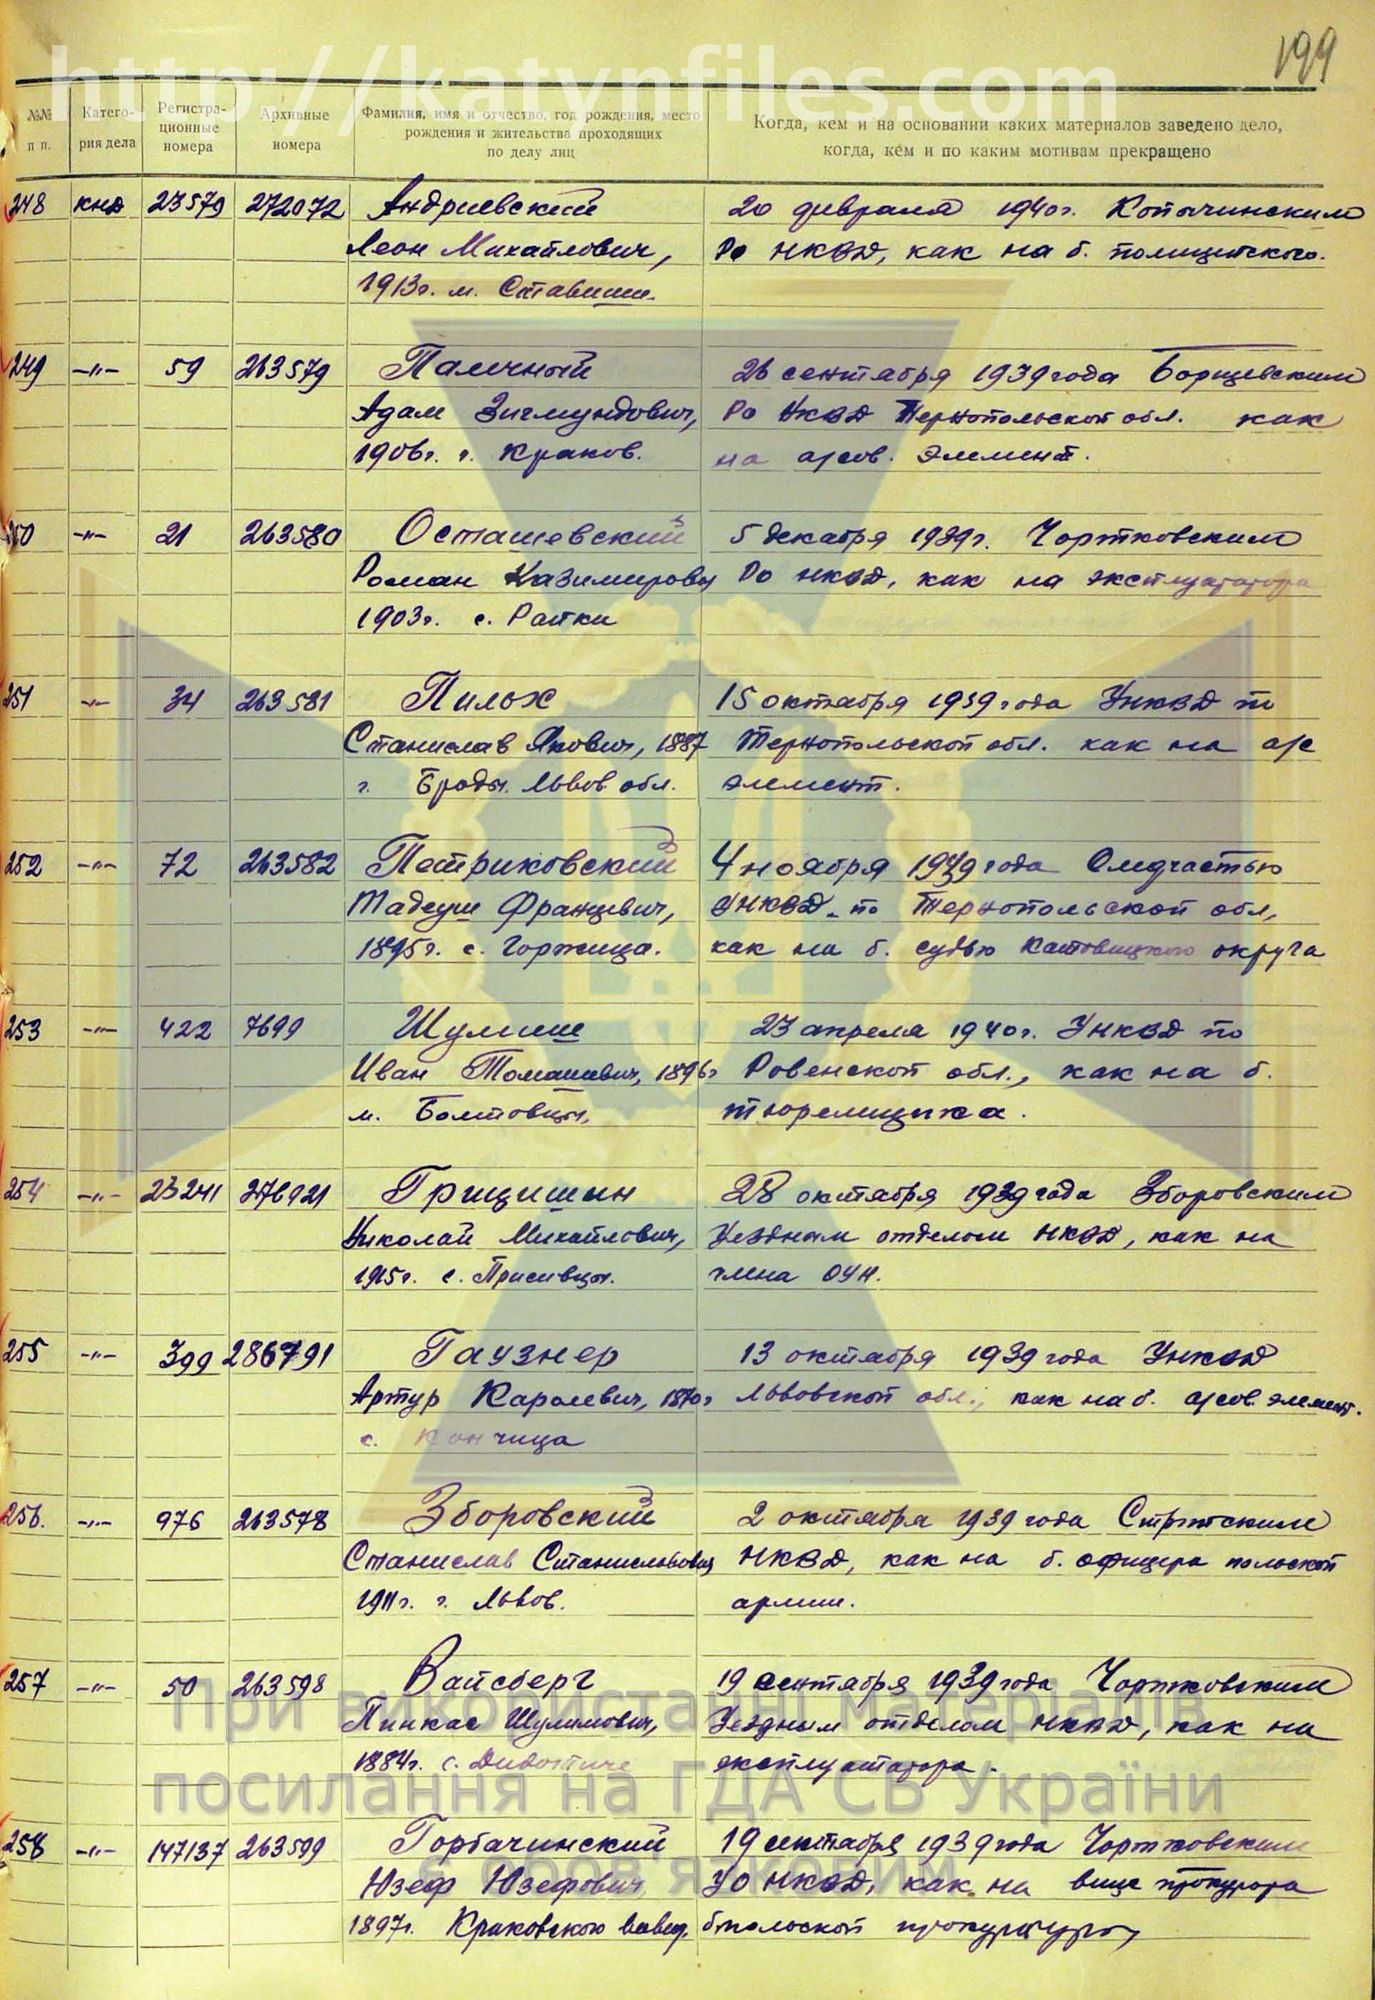 http://katynfiles.com
199
№№ п п.
Катего- рия дела
Регистра- ционные номера
Архивные номера
Фамилия, имя и отчество, год рождения, место рождения и жительства проходящих по делу лиц
Когда, кем и на основании каких материалов заведено дело, когда, кем и по каким мотивам прекращено
248 кнд 23579 272072 Андриевский 20 февраля 1940г. Копычинским
Леон Михайлович, Ро НКВД, как на б. полицейского.
1913г. м. Ставище.
249 -"- 59 263579 26 сентября 1939 года Борщевским
Адам Зигмундович, Ро НКВД Тернопольской обл. как
1906г. г. Краков. на а/сов. элемент.
250 -"- 21 263580 Осташевский 5 декабря 1939г. Чортковским
Роман Казимирович Ро НКВД, как на эксплуататора
1903г. с.
251 -"- 34 263581 Пильх 15 октября 1939 года УНКВД по
Станислав Якович, 1887 Тернопольской обл. как на а/с
г. Броды. Львов обл. элемент.
252 -"- 72 263582 Петриковский 4 ноября 1939 года Следчастью
Тадеуш Францевич, УНКВД по Тернопольской обл,
1895г. с. Горжица. как на б. судью Катовицкого округа
253 -"- 422 7699 23 апреля 1940г. УНКВД по
Иван Томашевич, 1896г Ровенской обл., как на б.
м. тюремщика.
254 -"- 23241 276921 Грицишин 28 октября 1939 года Зборовским
Николай Михайлович, Уездным отделом НКВД, как на
1915г. с. Присивцы. члена ОУН.
255 -"- 399 286791 Гаузнер 13 октября 1939 года УНКВД
Артур Каролевич, 1870г Львовской обл., как на б. а/сов. элемент.
с. Кончица
256. -"- 976 263578 Зборовский 2 октября 1939 года Стрыйским
Станислав Станиславович НКВД, как на б. офицера польской
1911г. г. Львов. армии.
257 -"- 50 263598 Вайсберг 19 сентября 1939 года Чортковским
Пинкас Шулимович, Уездным отделом НКВД, как на
1884г. с. эксплуататора.
258 -"- 147137 263599 Горбачинский 19 сентября 1939 года Чортковским
Юзеф Юзефович УО НКВД, как на вице прокурора
1897г. Краковского воевод. б польской прокуратуры
При використанні матеріалів
посилання на ГДА СБ України
є обов'язковим